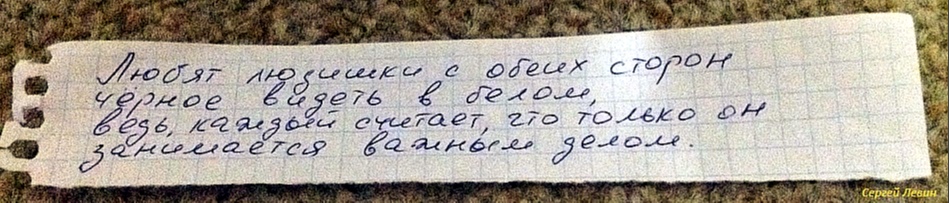 Любят людишки с обеих сторон
чёрное видеть в белом,
ведь, каждый считает, что только он
занимается важным делом.
Сергей Левин